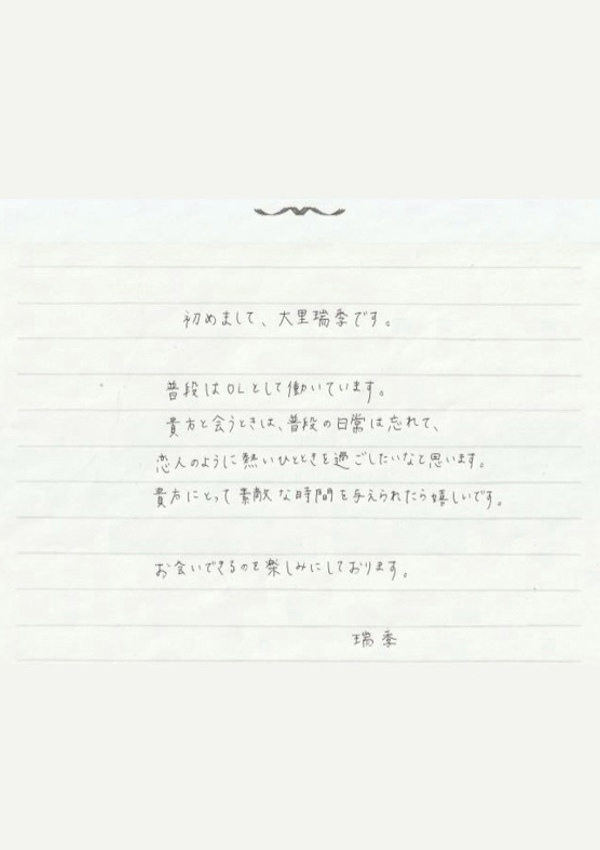 初めまして、大里瑞季です。
普段はOLとして働いています。
貴方と会うときは、普段の日常は忘れて、
恋人のように熱いひとときを過ごしたいなと思います。
貴方にとって素敵な時間を与えられたら嬉しいです。
お会いできるのを楽しみにしております。
瑞季